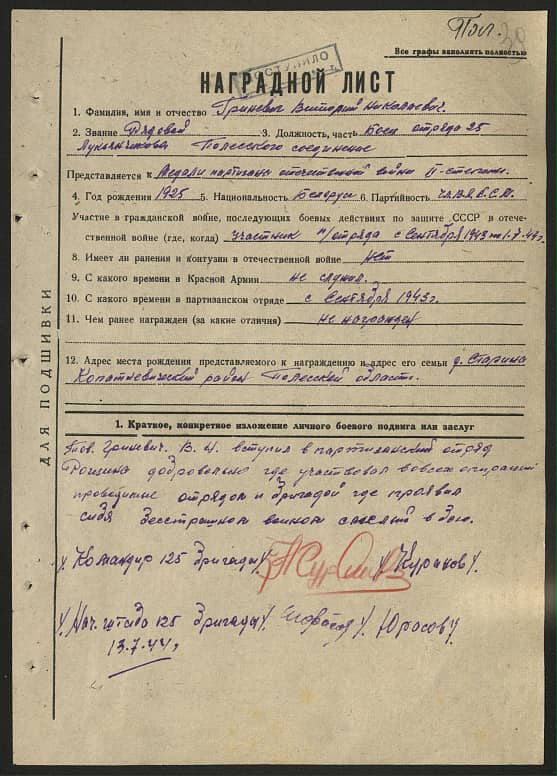 Пол.
Все графы заполнять полностью
НАГРАДНОЙ ЛИСТ
1. Фамилия, имя и отчество Гриневич Виктория Николаевич.
2. Звание Рядовой 3. Должность, часть Боец отряда 25
Полесского соединение
Представляется к Медали партизана отечественной войны II-степени.
4. Год рождения 1925 5. Национальность Беларус 6. Партийность
Участие в гражданской войне, последующих боевых действиях по защите СССР в отече-
ственной войне (где, когда) участник п/отряда с Сентября 1943 по 1.7.44г.
8. Имеет ли ранения и контузии в отечественной войне нет
9. С какого времени в Красной Армии не служил.
10. С какого времени в партизанском отряде с Сентября 1943г.
11. Чем ранее награжден (за какие отличия) не награжден
12. Адрес места рождения представляемого к награждению и адрес его семьи д. Старина
Копаткевический район Полесской области.
ДЛЯ ПОДШИВКИ
1. Краткое, конкретное изложение личного боевого подвига или заслуг
Тов. Гриневич. В. Н. вступил в партизанский отряд
добровольно где участвовал во всех операций
проводимые отрядом и бригадой где проявил
себя бесстрашном воином смелый в бою.
Командир 125 бригады /Кураков/.
/Нач. штаба 125 бригады/. /Юрасов/
13.7.44г